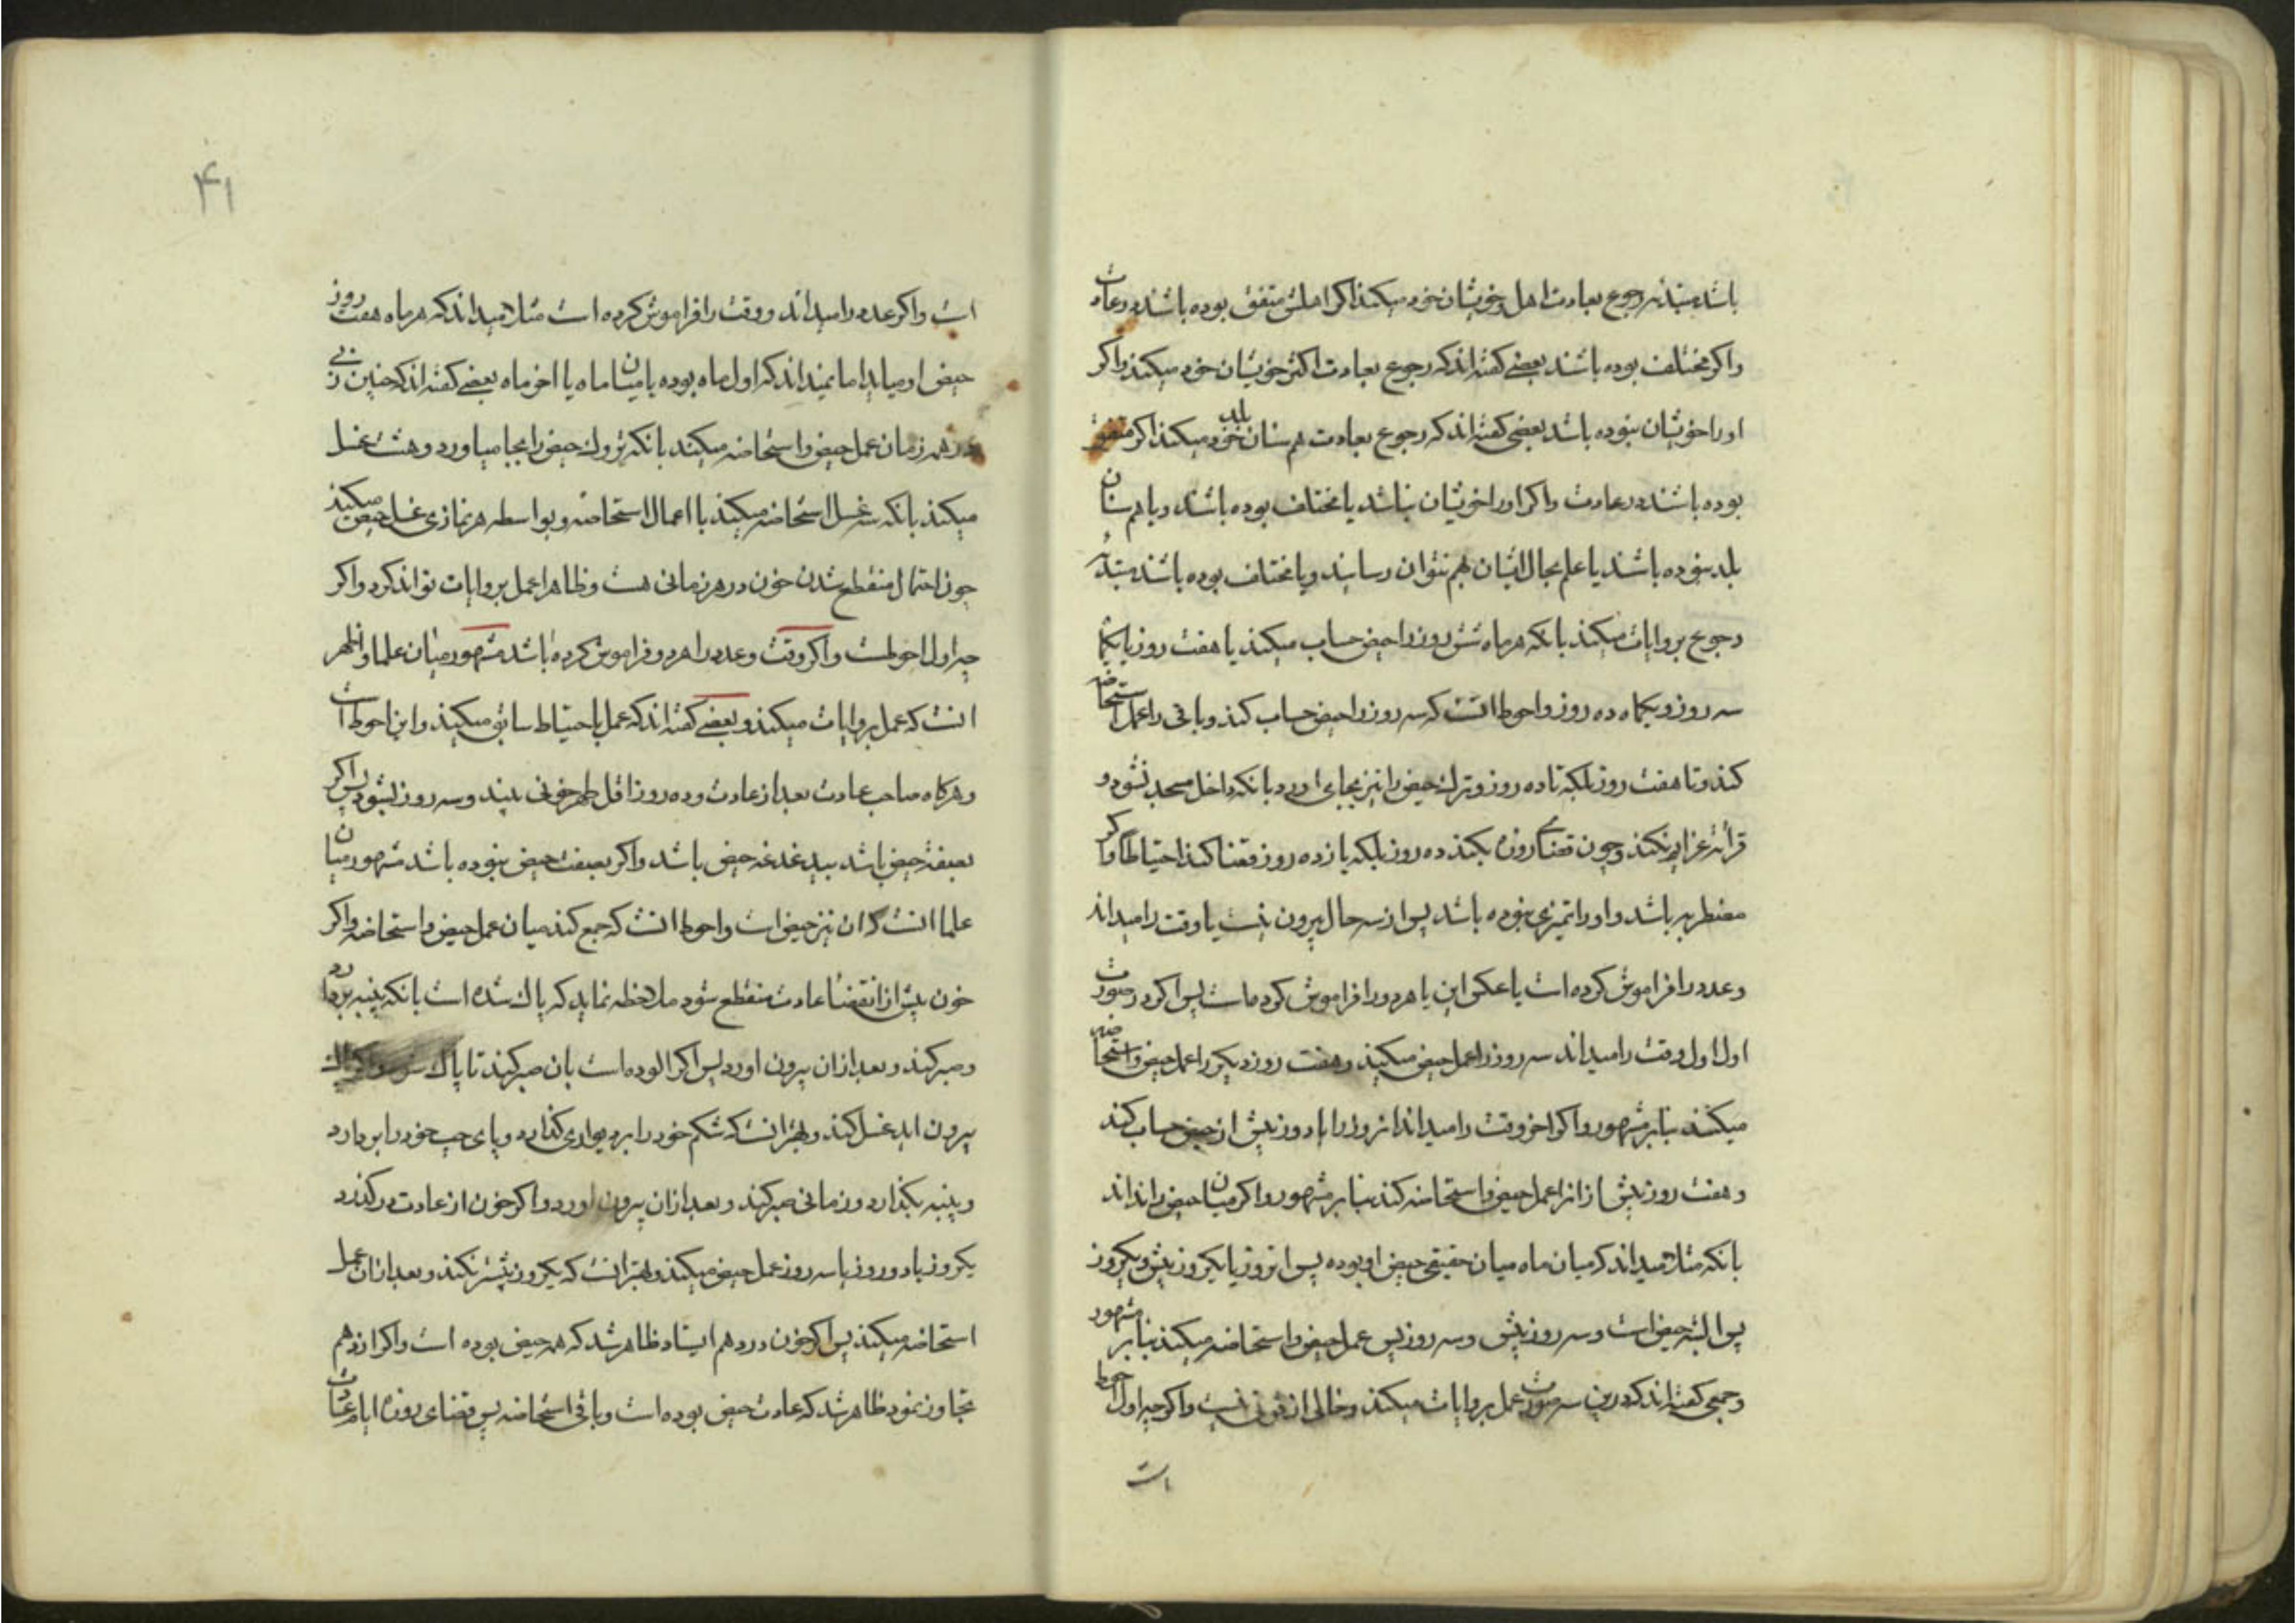 باشد مبتدئه رجوع بعادت اهل و خویشان خود میکند اکر اهلش متفق بوده باشند در عادت
واکر مختلف بوده باشند بعضی کفته‌اند که رجوع بعادت اکثر خویشان خود میکند واکر
اورا خویشان نبوده باشد بعضی کفته‌اند که رجوع بعادت هم سنان بلد خود میکند اکر متفق
بوده باشند در عادت واکر اورا خویشان نباشد یا مختلف بوده باشند و یا هم سنان
بلد نبوده باشند یا علم بحال ایشان بهم نتوان رسانید و یا مختلف بوده باشند مبتدئه
رجوع بروایات میکند بانکه هر ماه شش روز را حیض حساب میکند یا هفت روز یا یکماه
سه روز و یکماه ده روز واحوط انست که سه روز را حیض حساب کند و باقی را عمل استحاضه
کند و تا هفت روز بلکه تا ده روز و ترک حیض را نیز بجای اورد بانکه داخل مسجد نشود و
قرائة عزایم نکند و چون قضای روزه بکند ده روز بلکه یازده روز قضا کند احتیاطا واکر
مضطربه باشد و اورا تمیزی نبوده باشد پس از سه حال بیرون نیست یا وقت را میداند
و عدد را فراموش کرده است یا عکس این یا هر دو را فراموش کرده است پس اکر در صورت
اول اول وقت را میداند سه روز را عمل حیض میکند و هفت روز دیکر را عمل حیض و استحاضه
میکند بنا بر مشهور واکر اخر وقت را میداند انروز را با دو روز پیش از حیض حساب کند
و هفت روز پیش از انرا عمل حیض و استحاضه کند بنا بر مشهور واکر میان حیض را داند
بانکه مثلا میداند که میان ماه میان حقیقی حیض او بوده پس انروز یا یکروز پیش و یکروز
پس البته حیض است و سه روز پیش و سه روز پس عمل حیض و استحاضه میکند بنا بر مشهور
و جمعی کفته‌اند که درین سه صورت عمل بروایات میکند و خالی از قوتی نیست واکرچه اول احوط
است
۴۱
است واکر عدد را میداند و وقت را فراموش کرده است مثلا میداند که هر ماه هفت روز
حیض او میاید اما نمیداند که اول ماه بوده یا میان ماه یا اخر ماه بعضی کفته‌اند که چنین زنی
در همه زمان عمل حیض و استحاضه میکند بانکه تروک حیض را بجا میاورد و هشت غسل
میکند بانکه سه غسل استحاضه میکند با اعمال استحاضه و بواسطه هر نمازی غسل حیض میکند
چون احتمال منقطع شدن خون در هر زمانی هست و ظاهرا عمل بروایات تواند کرد واکر
چه اول احوطست واکر وقت و عدد را هر دو فراموش کرده باشد مشهور میان علما و اظهر
انست که عمل بروایات میکند و بعضی کفته‌اند که عمل باحتیاط سابق میکند و این احوط است
و هرکاه صاحب عادت بعد از عادت و ده روز اقل طهر خونی بیند و سه روز بشود پس اکر
بصفة حیض باشد بیدغدغه حیض باشد واکر بصفت حیض نبوده باشد مشهور میان
علما انست که ان نیز حیض است واحوط انست که جمع کند میان عمل حیض و استحاضه واکر
خون پیش از انقضا عادت منقطع شود ملاحظه نماید که پاک شده است بانکه پنبه بردارد
و صبر کند و بعد از ان بیرون اورد پس اکر الوده است بان صبر کند تا پاک شود واکر پاک
بیرون اید غسل کند و بهتر انست که شکم خود را بر دیواری کذارد و پای چپ خود را بردارد
و پنبه بکذارد و زمانی صبر کند و بعد از ان بیرون اورد واکر خون از عادت در کذرد
یکروز یا دو روز یا سه روز عمل حیض میکند و بهتر انست که یکروز بیشتر نکند و بعد از ان عمل
استحاضه میکند پس اکر خون در دهم ایستاد ظاهر شد که همه حیض بوده است واکر از دهم
تجاوز نمود ظاهر شد که عادت حیض بوده است و باقی استحاضه پس قضای روزه ایام عادت